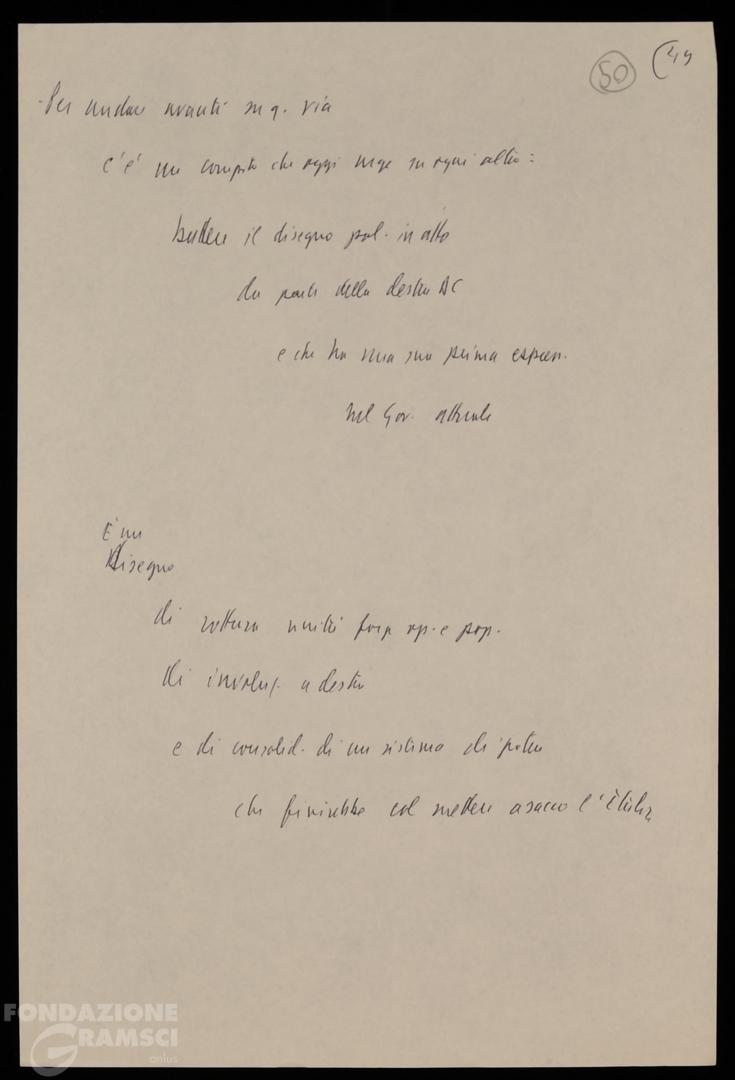 50 (49
- Per andare avanti su q. via
c'è un compito che oggi urge su ogni altro:
battere il disegno pol. in atto
da parte della destra DC
e che ha una sua prima espress.
nel Gov. attuale
È un
Disegno
di rottura unità forze op. e pop.
di involuz. a destra
e di consolid. di un sistema di potere
che finirebbe col mettere a sacco l'Italia
FONDAZIONE
GRAMSCI
onlus